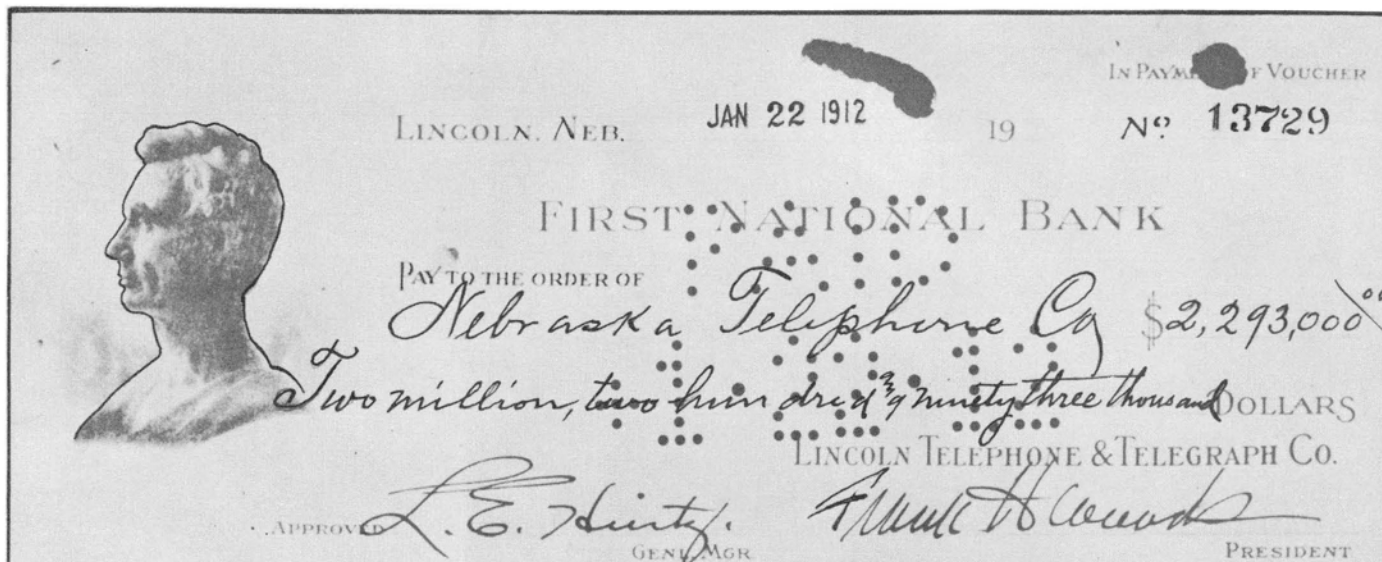 IN PAYM OF VOUCHER
LINCOLN. NEB. JAN 22 1912 19 No 13729
FIRST NATIONAL BANK
PAY TO THE ORDER OF
Nebraska Telephone Co $2,293,000 00
Two million, two hundred & ninety three thousand DOLLARS
LINCOLN TELEPHONE & TELEGRAPH CO.
APPROVED L. E. Hurtz. Frank H Woods
GENL MGR PRESIDENT